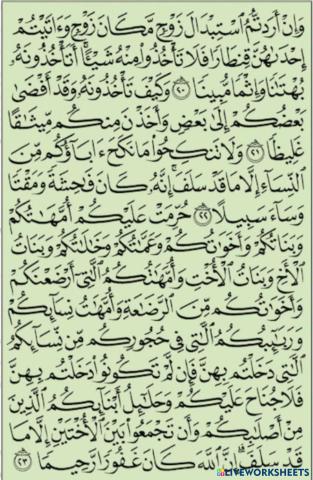 وَإِنْ أَرَدتُّمُ ٱسْتِبْدَالَ زَوْجٍ مَّكَانَ زَوْجٍ وَءَاتَيْتُمْ
إِحْدَىٰهُنَّ قِنطَارًا فَلَا تَأْخُذُوا۟ مِنْهُ شَيْـًٔا ۚ أَتَأْخُذُونَهُۥ
بُهْتَـٰنًا وَإِثْمًا مُّبِينًا ٢٠ وَكَيْفَ تَأْخُذُونَهُۥ وَقَدْ أَفْضَىٰ
بَعْضُكُمْ إِلَىٰ بَعْضٍ وَأَخَذْنَ مِنكُم مِّيثَـٰقًا
غَلِيظًا ٢١ وَلَا تَنكِحُوا۟ مَا نَكَحَ ءَابَآؤُكُم مِّنَ
ٱلنِّسَآءِ إِلَّا مَا قَدْ سَلَفَ ۚ إِنَّهُۥ كَانَ فَـٰحِشَةً وَمَقْتًا
وَسَآءَ سَبِيلًا ٢٢ حُرِّمَتْ عَلَيْكُمْ أُمَّهَـٰتُكُمْ
وَبَنَاتُكُمْ وَأَخَوَٰتُكُمْ وَعَمَّـٰتُكُمْ وَخَـٰلَـٰتُكُمْ وَبَنَاتُ
ٱلْأَخِ وَبَنَاتُ ٱلْأُخْتِ وَأُمَّهَـٰتُكُمُ ٱلَّـٰتِىٓ أَرْضَعْنَكُمْ
وَأَخَوَٰتُكُم مِّنَ ٱلرَّضَـٰعَةِ وَأُمَّهَـٰتُ نِسَآئِكُمْ
وَرَبَـٰٓئِبُكُمُ ٱلَّـٰتِى فِى حُجُورِكُم مِّن نِّسَآئِكُمُ
ٱلَّـٰتِى دَخَلْتُم بِهِنَّ فَإِن لَّمْ تَكُونُوا۟ دَخَلْتُم بِهِنَّ
فَلَا جُنَاحَ عَلَيْكُمْ وَحَلَـٰٓئِلُ أَبْنَآئِكُمُ ٱلَّذِينَ
مِنْ أَصْلَـٰبِكُمْ وَأَن تَجْمَعُوا۟ بَيْنَ ٱلْأُخْتَيْنِ إِلَّا مَا
قَدْ سَلَفَ ۗ إِنَّ ٱللَّهَ كَانَ غَفُورًا رَّحِيمًا ٢٣
LIVEWORKSHEETS